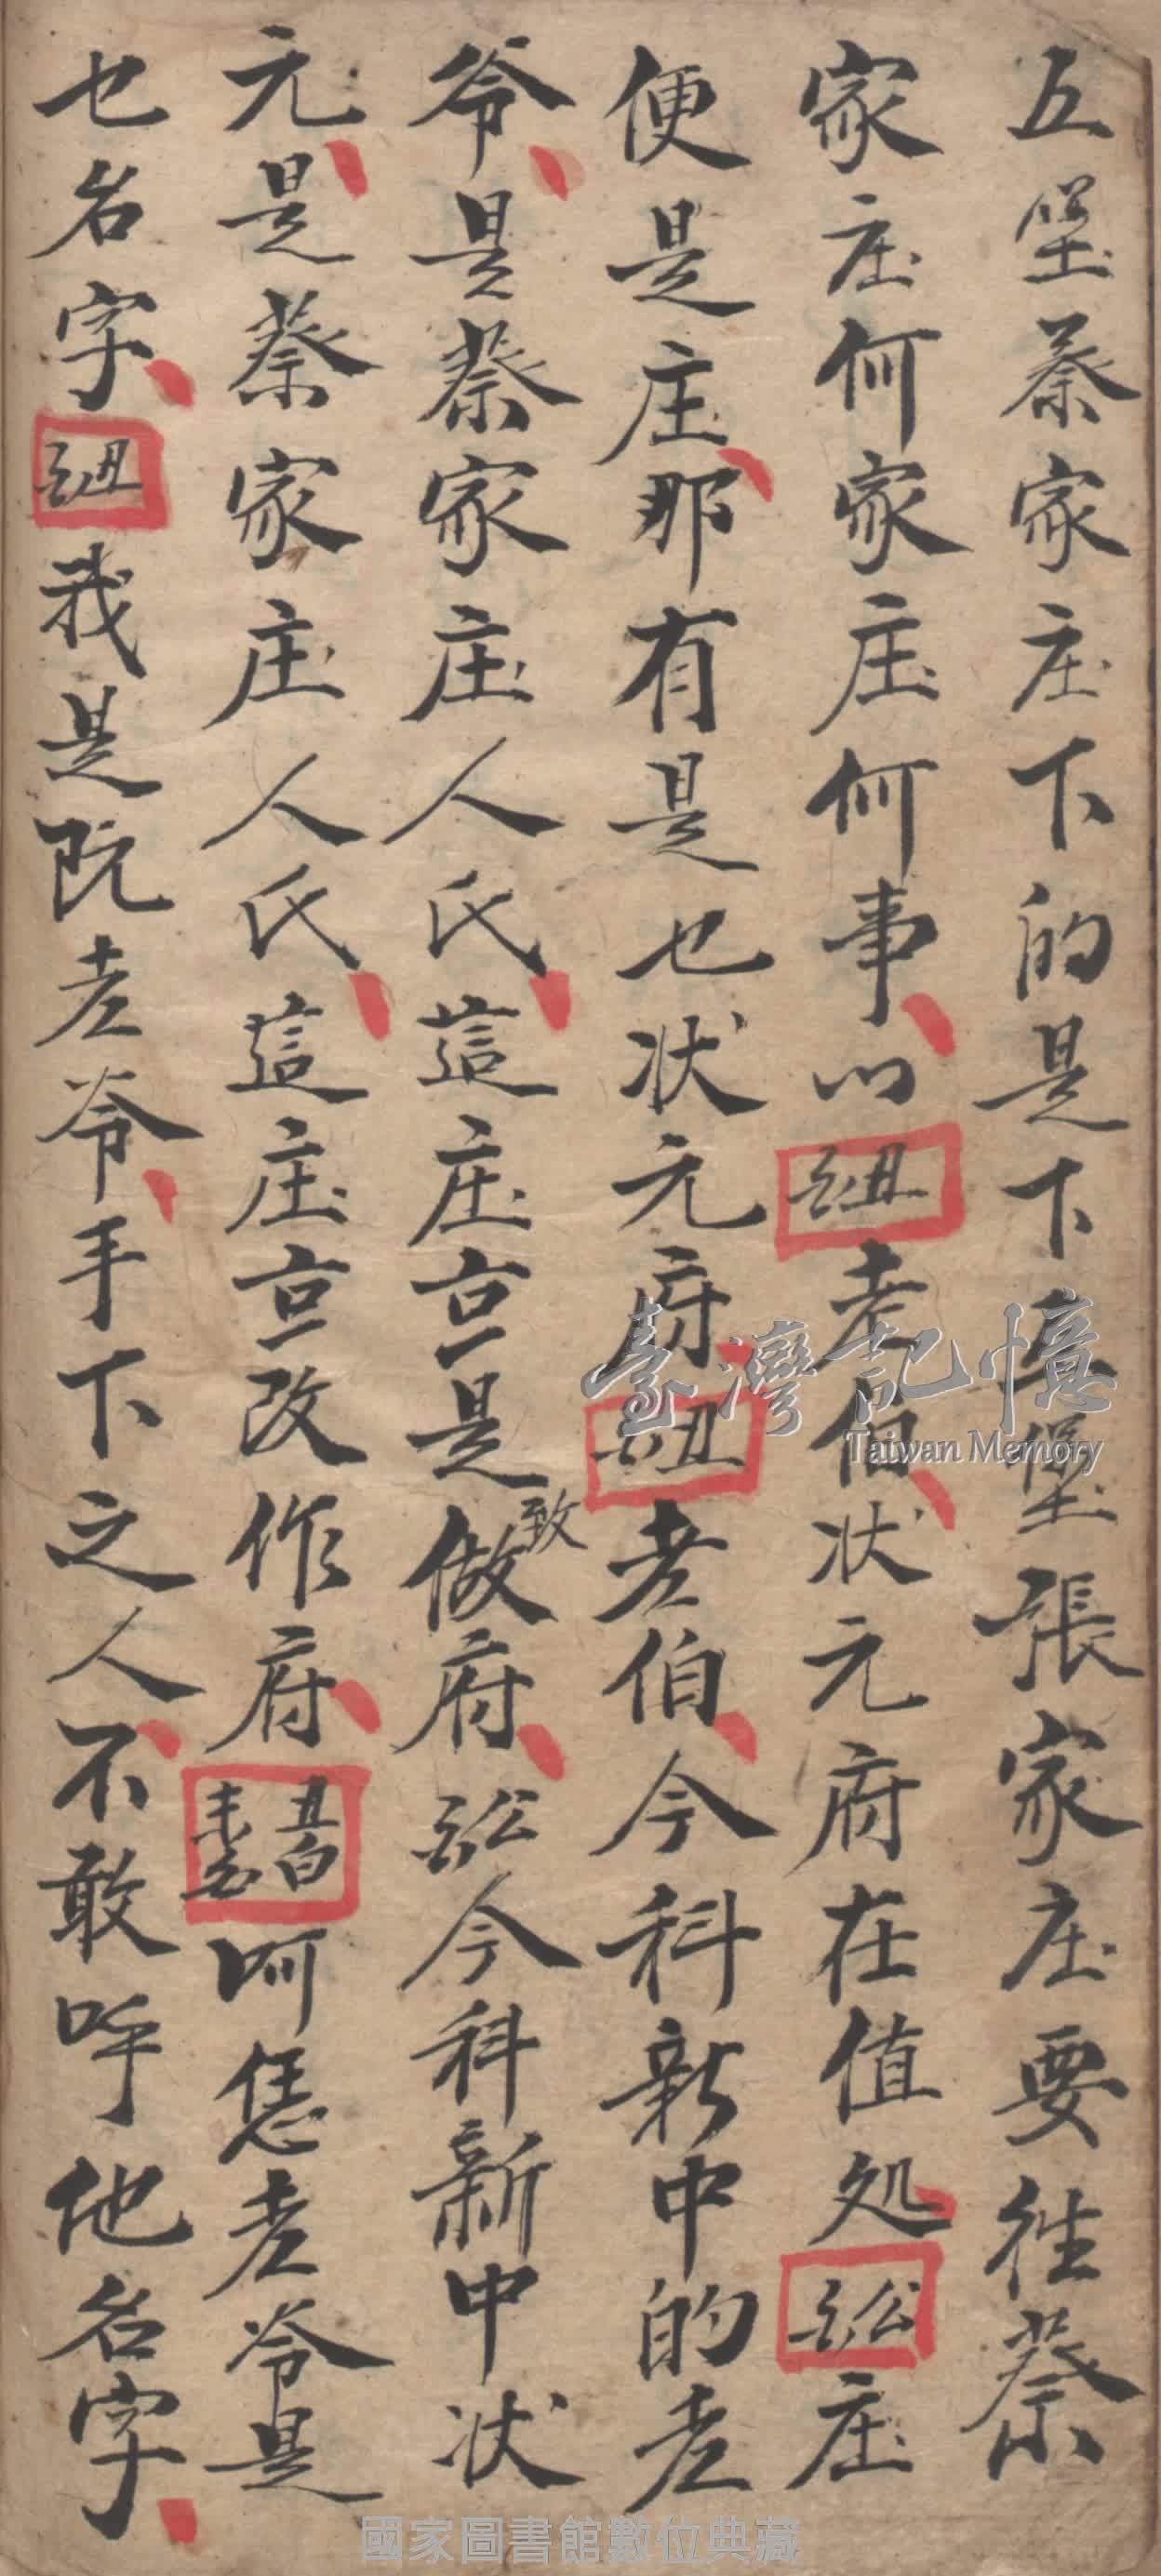 五堡蔡家庄下的是下五堡張家庄要往蔡
家庄何家庄何事 丑 老伯状元府在值処 公 庄
便是庄那有是乜状元府 丑 老伯今科新中的老
爷是蔡家庄人氏這庄豈是做致府 公 今科新中状
元是蔡家庄人氏這庄豈改作府 丑白 呵恁老爷是
乜名字 丑 我是阮老爷手下之人不敢呼他名字
臺灣記憶
Taiwan Memory
國家圖書館數位典藏